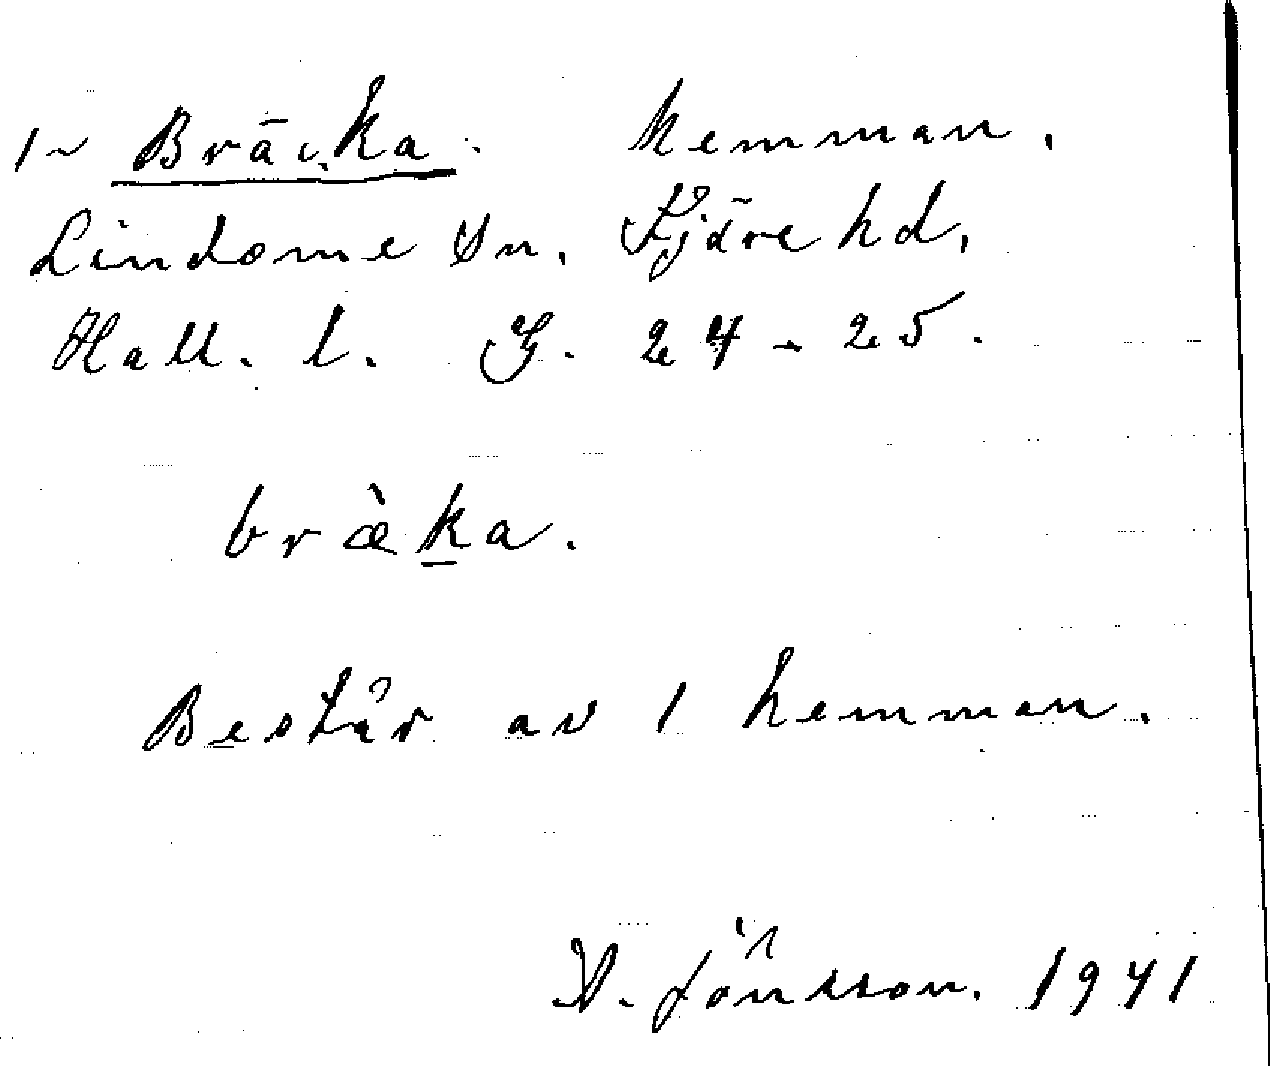 1~ Bräcka. hemman.
Lindome Sn. Fjäre hd.
Hall. l. G. 24-25.
bræ̀ka.
Består av 1 hemman.
D. Jönsson. 1941